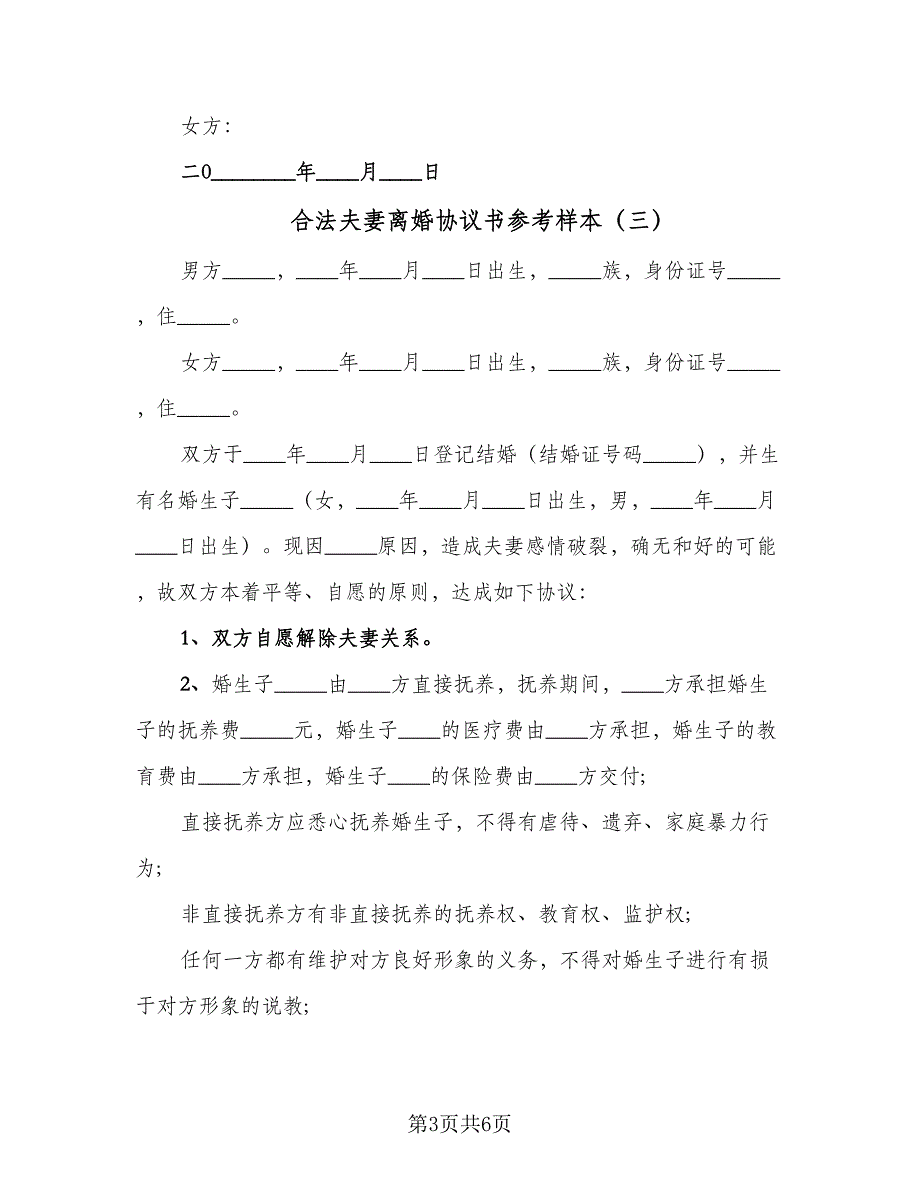 女方：
二0________年____月____日
合法夫妻离婚协议书参考样本（三）
男方_____，____年____月____日出生，_____族，身份证号_____
，住_____。
女方_____，____年____月____日出生，_____族，身份证号_____
，住_____。
双方于____年____月____日登记结婚（结婚证号码_____），并生
有名婚生子_____（女，____年____月____日出生，男，____年____月
____日出生）。现因_____原因，造成夫妻感情破裂，确无和好的可能
，故双方本着平等、自愿的原则，达成如下协议：
1、双方自愿解除夫妻关系。
2、婚生子_____由____方直接抚养，抚养期间，____方承担婚生
子的抚养费_____元，婚生子____的医疗费由____方承担，婚生子的教
育费由____方承担，婚生子____的保险费由____方交付;
直接抚养方应悉心抚养婚生子，不得有虐待、遗弃、家庭暴力行
为;
非直接抚养方有非直接抚养的抚养权、教育权、监护权;
任何一方都有维护对方良好形象的义务，不得对婚生子进行有损
于对方形象的说教;
第3页共6页